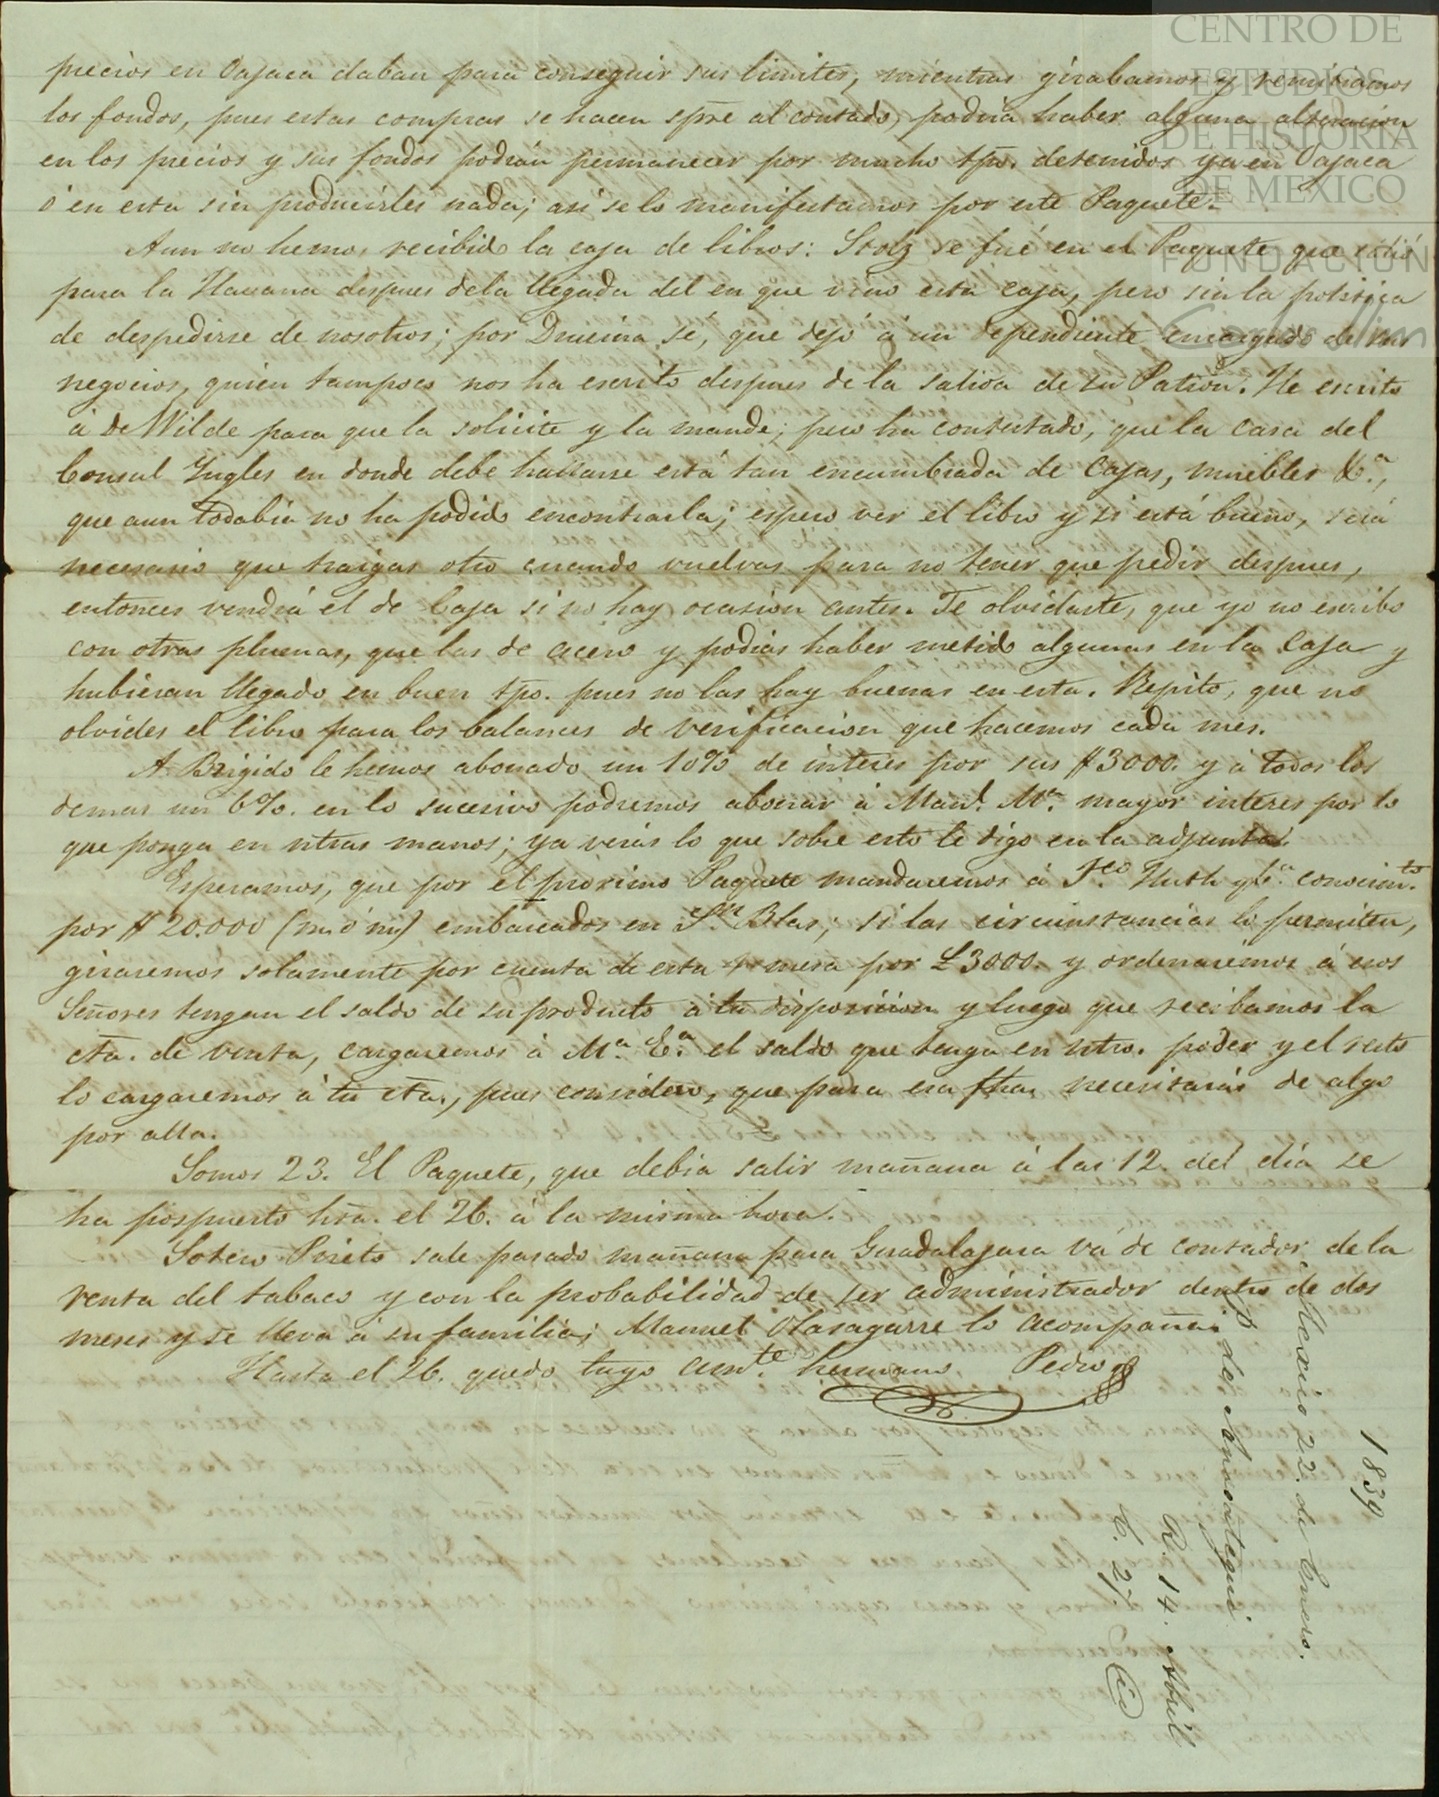 precios en Oajaca daban para conseguir sus limites, mientras girabamos y remitiamos
los fondos, pues estas compras se hacen spre al contado, podria haber alguna alteracion
en los precios y sus fondos podrán permanecer por mucho tpo. detenidos ya en Oajaca
ó en esta sin producirles nada; asi se lo manifestamos por este Paquete.
Aun no hemos recibido la caja de libros: Stolz se fué en el Paquete que salió
para la Havana despues dela llegada del en que vino esta caja, pero sin la politica
de despedirse de nosotros; por Drusina sé, que dejó á un dependiente encargado de sus
negocios, quien tampoco nos ha escrito despues de la salida de su Patron. He escrito
á De Wilde para que la solicite y la mande; pero ha contestado, que la casa del
Consul Yngles en donde debe hallarse está tan encumbrada de Cajas, muebles &a.,
que aun todabia no ha podido encontrarla; espero ver el libro y si está bueno, será
necesario que traigas otro cuando vuelvas para no tener que pedir despues,
entonces vendrá el de Caja si no hay ocasion antes. Te olvidaste, que yo no escribo
con otras plumas, que las de acero y podias haber metido algunas en la Caja y
hubieran llegado en buen tpo. pues no las hay buenas en esta. Repito, que no
olvides el libro para los balances de verificacion que hacemos cada mes.
A Brigido le hemos abonado un 10% de interes por sus $3000. y á todos los
demas un 6%. en lo sucesivo podremos abonar á Man.l M.a mayor interes por lo
que ponga en ntras manos; ya verás lo que sobre esto le digo en la adjunta.
Esperamos, que por el proximo Paquete mandaremos á F.co Huth y C.a conocim.to
por $20.000 (m. ó m.) embarcados en S.n Blas; si las circunstancias lo permiten,
giraremos solamente por cuenta de esta remesa por £3000. y ordenaremos á esos
Señores tengan el saldo de su producto á tu disposicion y luego que recibamos la
cta. de venta, cargaremos á M.a E.a el saldo que tenga en ntro. poder y el resto
lo cargaremos á tu cta., pues considero, que para esa fha. necesitarás de algo
por alla.
Somos 23. El Paquete, que debia salir mañana á las 12. del dia se
ha pospuesto hta. el 26. á la misma hora.
Sotero Prieto sale pasado mañana para Guadalajara vá de contador de la
renta del tabaco y con la probabilidad de ser administrador dentro de dos
meses y se lleva á su familia; Manuel Olasagarre lo acompaña.
Hasta el 26. quedo tuyo am.te hermano Pedro
1839
Mexico 22. de Enero.
P. de Ansoategui
R. 14. Abril
C. 27.
CENTRO DE
ESTUDIOS
DE HISTORIA
DE MEXICO
FUNDACIÓN
Carlos Slim